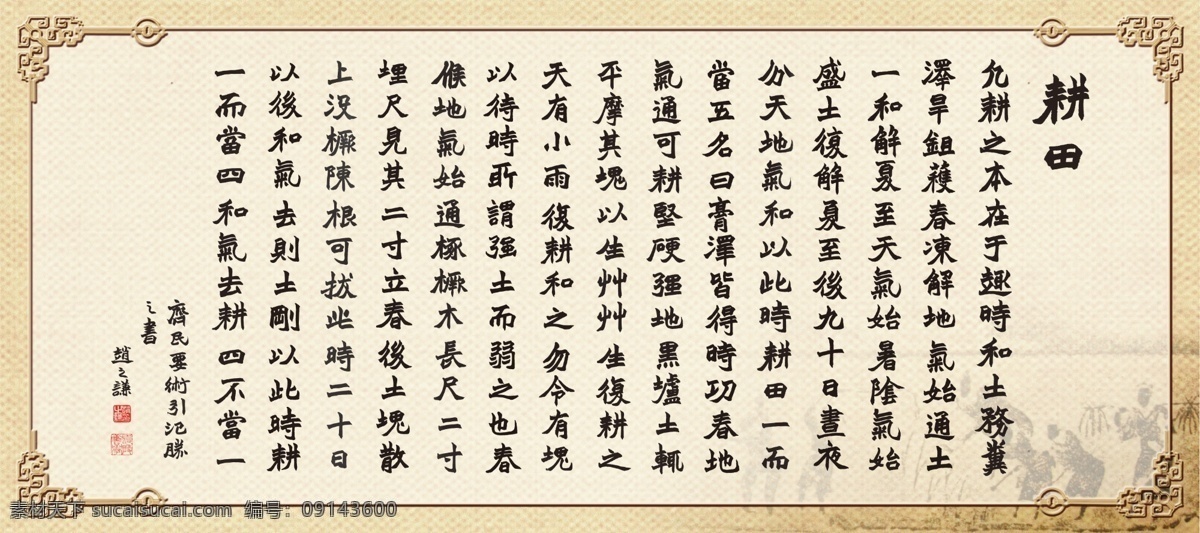 耕田
凡耕之本在于趣時和土務糞
澤旱鉏穫春凍解地氣始通土
一和解夏至天氣始暑陰氣始
盛土復解夏至後九十日晝夜
分天地氣和以此時耕田一而
當五名曰膏澤皆得時功春地
氣通可耕堅硬强地黑壚土輒
平摩其塊以生艸艸生復耕之
天有小雨復耕和之勿令有塊
以待時所謂强土而弱之也春
候地氣始通椓橛木長尺二寸
埋尺見其二寸立春後土塊散
上没橛陳根可拔此時二十日
以後和氣去則土剛以此時耕
一而當四和氣去耕四不當一
齊民要術引氾勝
之書
趙之謙
素材天下 sucaisucai.com 编号：09143600